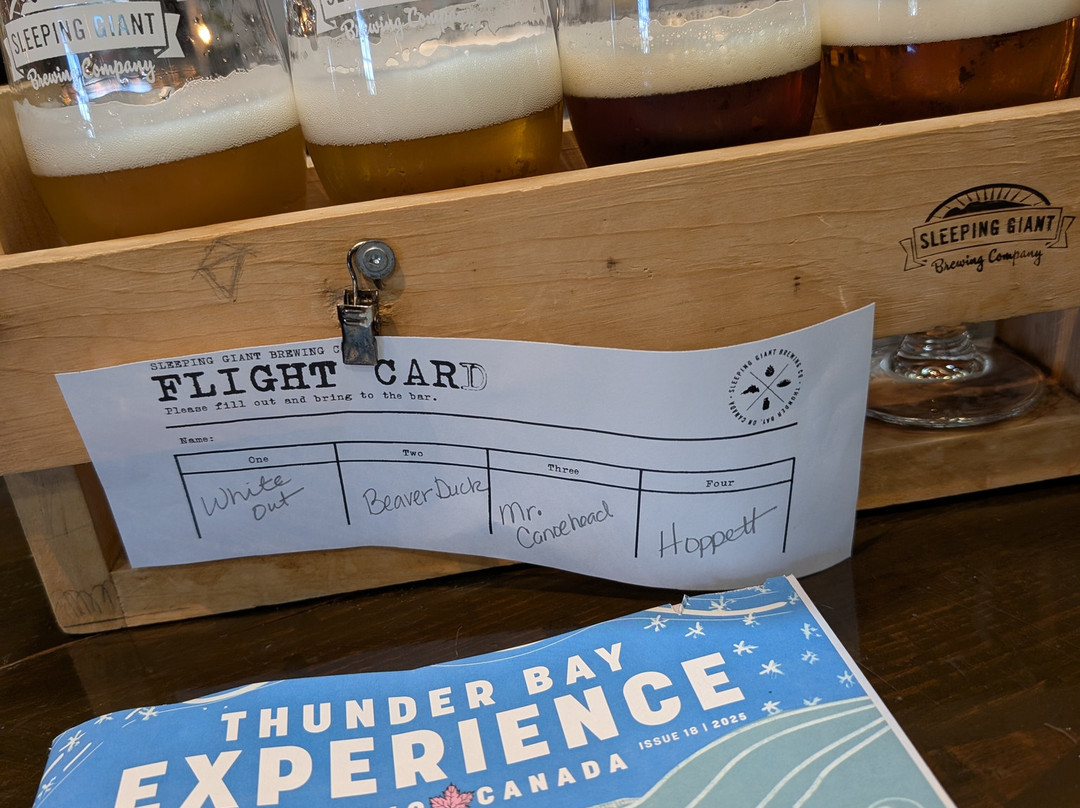 SLEEPING GIANT
Brewing Company
Brewing Company
SLEEPING GIANT
Brewing Company
SLEEPING GIANT BREWING
FLIGHT CARD
Please fill out and bring to the bar.
SLEEPING GIANT BREWING CO. THUNDER BAY, ON CANADA
Name:
One
Two
Three
Four
White
Out
BeaverDuck
Mr.
Canoehead
Hoppett
THUNDER BAY
EXPERIENCE
ISSUE 18 | 2025
CANADA